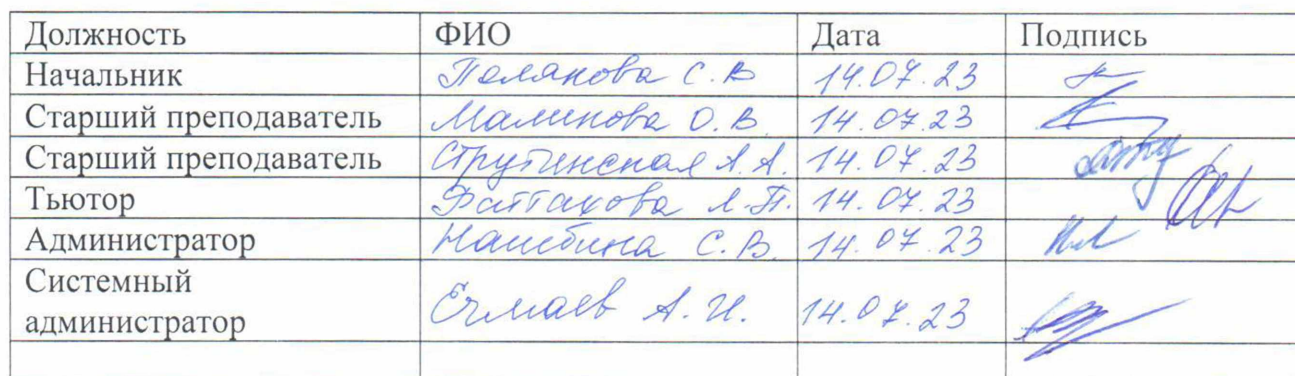 Должность ФИО Дата Подпись
Начальник Полякова С.В 14.07.23
Старший преподаватель Малинова О.В. 14.07.23
Старший преподаватель Струтинская А.А. 14.07.23
Тьютор Фаттахова Л.П. 14.07.23
Администратор С.В. 14.07.23
Системный
администратор А.И. 14.07.23